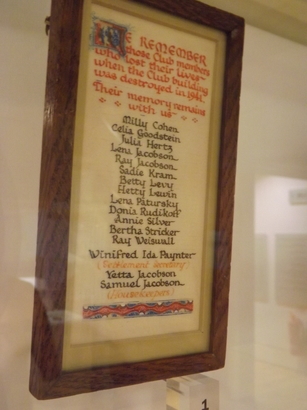 WE REMEMBER
those Club members
who lost their lives
when the Club building
was destroyed in 1941.
Their memory remains
with us
Milly Cohen
Celia Goodstein
Julia Hertz
Lena Jacobson
Ray Jacobson
Sadie Kram
Betty Levy
Hetty Lewin
Lena Patursky
Doris Rudikoff
Annie Silver
Bertha Stricker
Ray Weiswall
Winifred Ida Paynter
(Settlement Secretary)
Yetta Jacobson
Samuel Jacobson
1